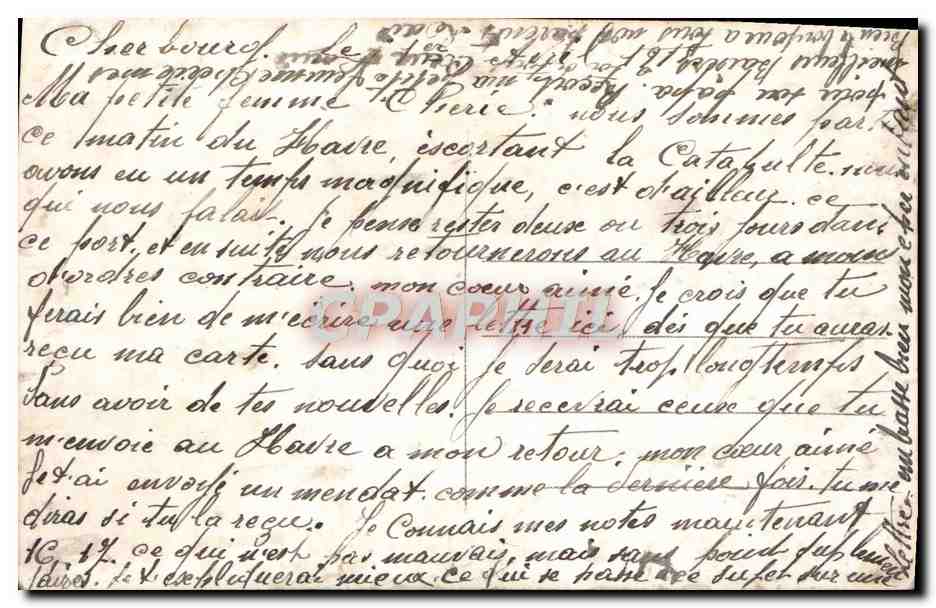 Cherbourg. Le
Ma petite femme Cherie. nous sommes parti
ce matin du Havre, escortant la Catapulte. nous
avons eu un temps magnifique, c'est d'ailleur ce
qui nous falait. Je pense rester deux ou trois jours dans
ce port, et en suite nous retournerons au Havre, a moin
d'ordres contraire. mon coeur aimé. Je crois que tu
ferais bien de m'ecrire une lettre ici, dés que tu auras
reçu ma carte. sans quoi je serai trop longtemps
sans avoir de tes nouvelles. Je recevrai ceux que tu
m'envoie au Havre a mon retour. mon coeur aimé
Je t'ai envoyé un mendat comme la dernière fois. tu me
diras si tu la reçu. Je Connais mes notes maintenant
16. 17. ce qui n'est pas mauvais, mais sans point suplemen
taires. Je t'expliquerai mieux ce qui se passe a ce sujet sur une
lettre. embrasse bien mon
pour ton papa. Reçoit, ma petite femme cherie mes
meilleurs Baisers
Bien le bonjour a tous nos parents
CPAPHIL